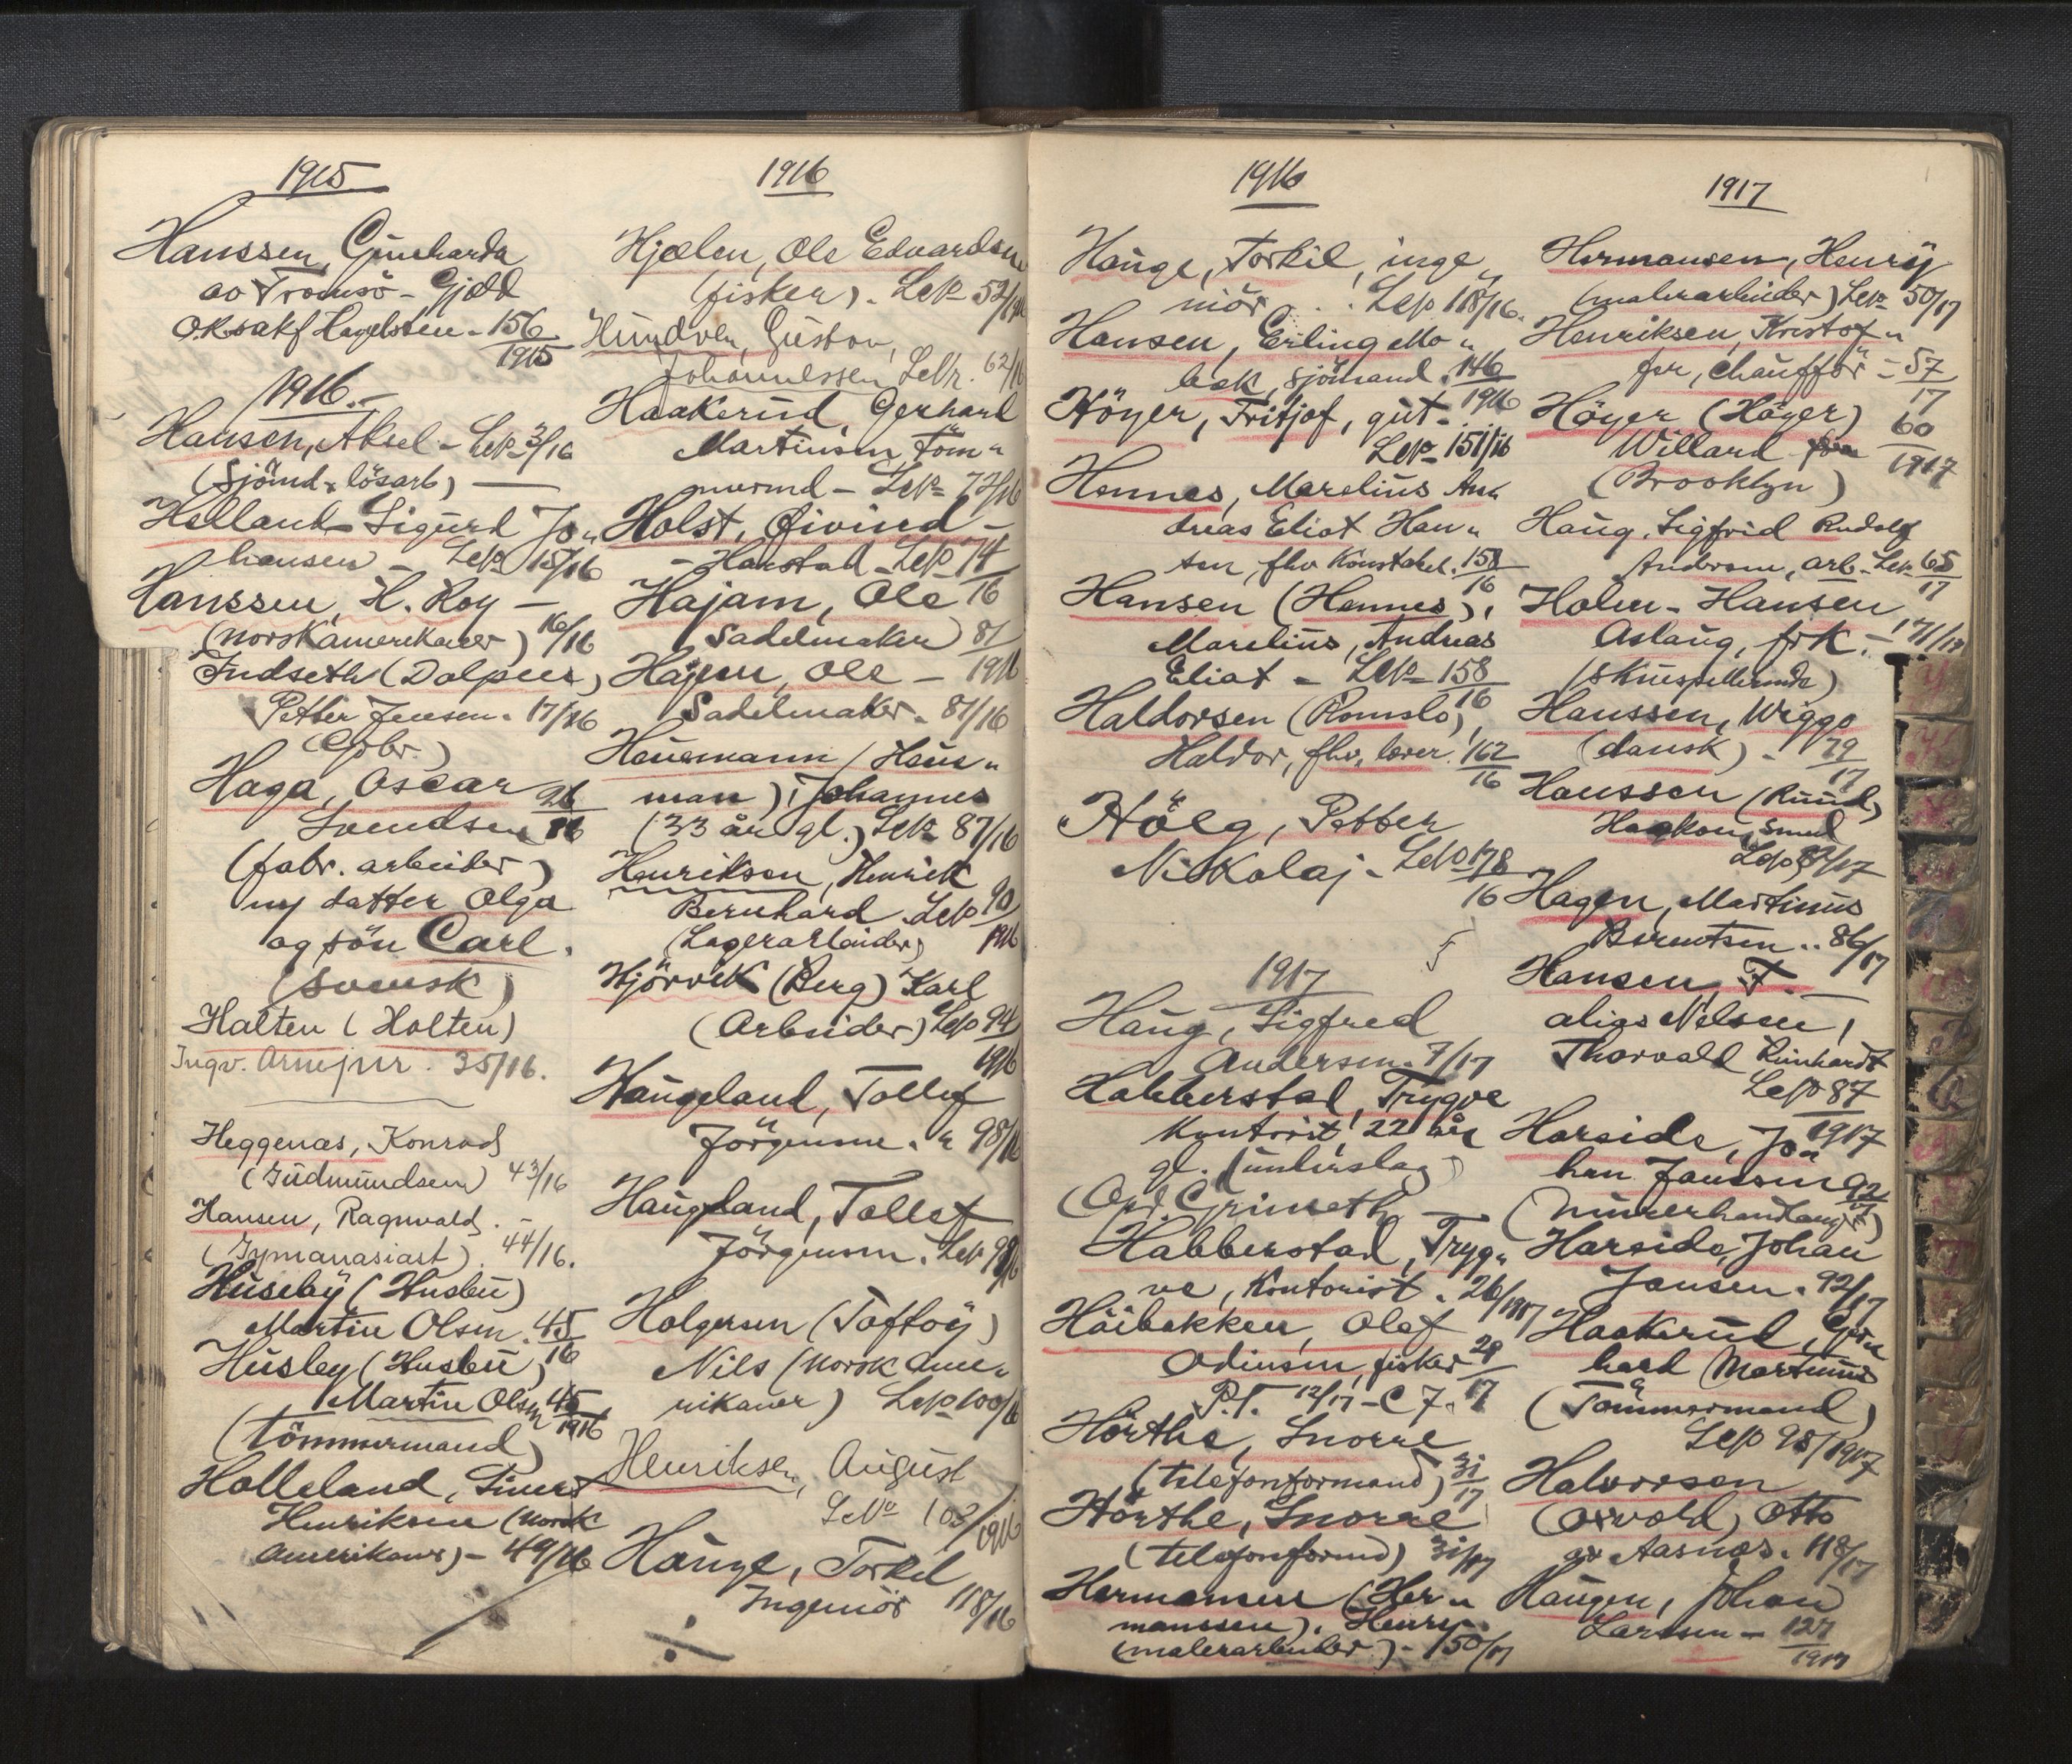 1915
Hanssen, Gunharda
av Tromsö - Gjæld
O.R.sakf Hagelsteen - 156
1915
1916.-
Hansen, Aksel - Lep 3/16
(Sjömd - lösarb)
Helland Sigurd Jo„
hansen - Lep 15/16
Hanssen, H. Roy -
(norskamerikaner) 16/16
Indseth (Dolpens)
Petter Jensen. 17/16
Haga, Oscar 26
Svendsen 16
(fabr. arbeider)
datter Olga
og sön Carl.
(svensk)
Halten (Holten)
Ingv. Arnejner. 35/16.
Heggenæs, Konrad
(Gudmundsen) 43/16
Hansen, Ragnvald. -
(Gymanasiast). 44/16.
Huseby (Husbu)
Martin Olsen. 45
16
Husby (Husbu)
Martin Olsen 45
1916
(tömmermand)
Holleland, Sivert
Henriksen (norsk
amerikaner) - 49/16
1916
Hjælen, Ole Edvardsen
(fisker). Lep 52/16
Hundven, Gustav,
Johannessen Lnr. 62/16
Haakerud, Gerhard
Martinsen, töm„
mermd - Lep 72/16
Holst, Öivind -
- Harstad - Lep 74
16
Hajam, Ole
Sadelmaker) 81
1916
Hajem, Ole -
Sadelmaker. 81/16
Hausmann (Haus„
man), Johannes
(33 år gl.) Lep 87/16
Henriksen, Henrik
Bernhard. Lep 90
1916
(Lagerarbeider)
Hjörvik (Berg) Karl
(Arbeider) Lep 94
1916
Haugeland, Tollef
Jörgensen. „ 98/16
Haugland, Tollef
Jörgensen. Lep 98/16
Holgersen (Toftöy)
Nils (norsk ame„
rikaner) Lep 100/16
Henriksen, August
LNo 103/1916
Hauge, Torkel
Ingeniör 118/16
1916
Hauge, Torkil, inge„
niör . . Lep 118/16.
Hansen, Erling Mo„
bak, sjömand. 146
1916
Höyer, Fritjof, gut -
Lep 151/16
Hennes, Marelius An„
dreas Eliot Han„
sen, fhv konstabel. 158
16
Hansen (Hennes),
Marelius, Andreas
Eliot - Lep 158
16
Haldorsen (Romslo),
Haldor, fhv. lærer. 162
16
Hölg, Petter
Nikolaj - Lep 178
16
1917
Haug, Sigfred
Andersen. 7/17
Habberstad, Trygve
Kontorist, 22 år
gl. (underslag)
(Opd. Grimseth -
Habberstad, Tryg„
ve, Kontorist. 26/1917
Höibakken, Olaf
Odinsen, fisker 28
17
P.T. 12/17 - C 7.
Hörthe, Snorre
(telefonformand) 31
17
Hörthe, Snorre
(telefonformd) 31/17
Hermansen (Her„
manssen). Henry.
(malerarbeider) - 50/17
1917
Hermansen, Henry
(malerarbeider) Lep 50/17
Henriksen, Kristof„
fer, chaufför - 57
17
Höyer (Höyer) 60
1917
Willard fra
(Brooklyn)
Haug, Sigfrid Rudolf
Andersen, arb. - Lep 65
17
Holm - Hansen
Aslaug, frk. - 171/17
(skuespillerinde)
Hanssen, Wiggo
(dansk) - 79
17
Hanssen (Ruud)
Haakon, smed
Lep 82/17
Hagen, Martinus
Berntsen.. 86/17
Hansen, F. -
alias Nelsen,
Thorvald Reinhardt
Lep 87
1917
Harside, Jo„
han Janssen 92
17
(Murerhandlanger)
Harside, Johan
Jansen. 92/17
Haakerud, Ger„
hard Martinus
(Tömmermand)
Lep 98/1917
Halvorsen
(Osvold) Otto
av Aasnæs. 118/17
Haugen, Johan
Larssen - 127
1917